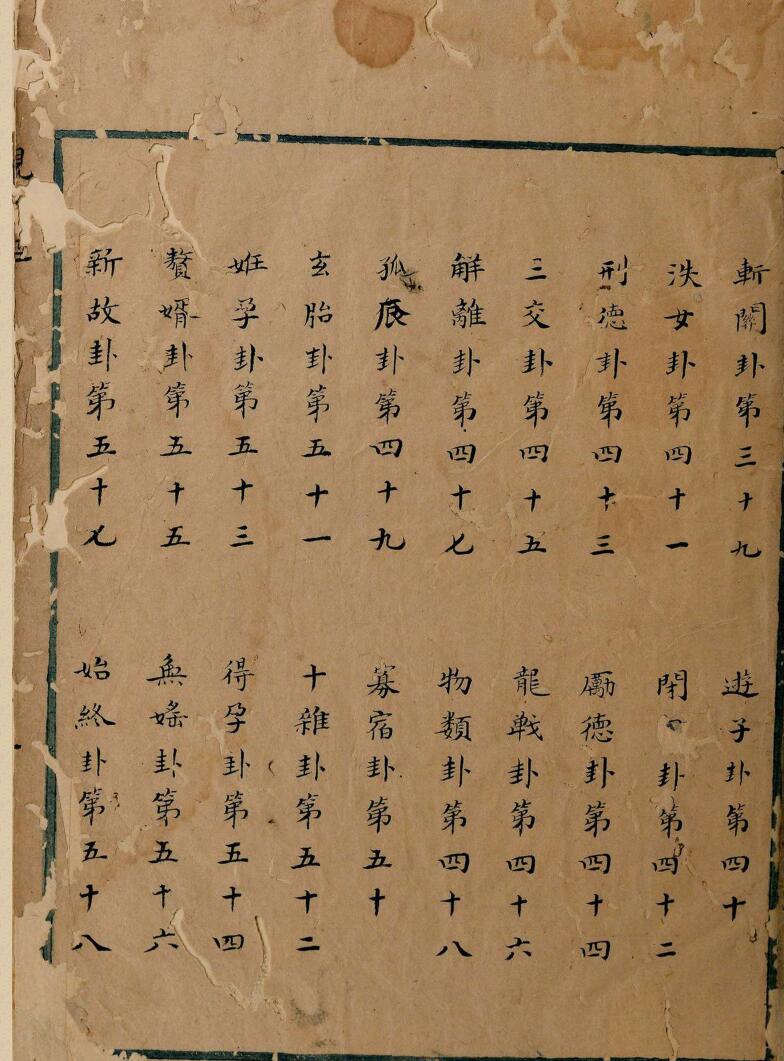 斬關卦第三十九　遊子卦第四十
泆女卦第四十一　閉口卦第四十二
刑德卦第四十三　勵德卦第四十四
三交卦第四十五　龍戰卦第四十六
觧離卦第四十七　物類卦第四十八
孤辰卦第四十九　寡宿卦第五十
玄胎卦第五十一　十雜卦第五十二
妊孕卦第五十三　得孕卦第五十四
贅婿卦第五十五　無媱卦第五十六
新故卦第五十七　始終卦第五十八